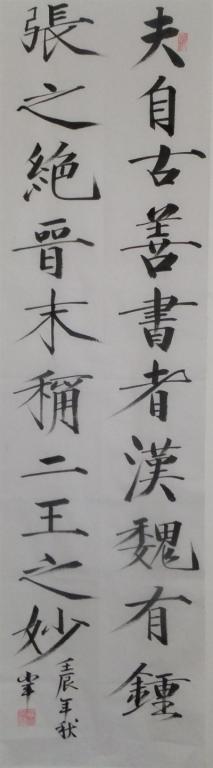 夫自古善書者漢魏有鍾
張之絶晉末稱二王之妙
壬辰年秋